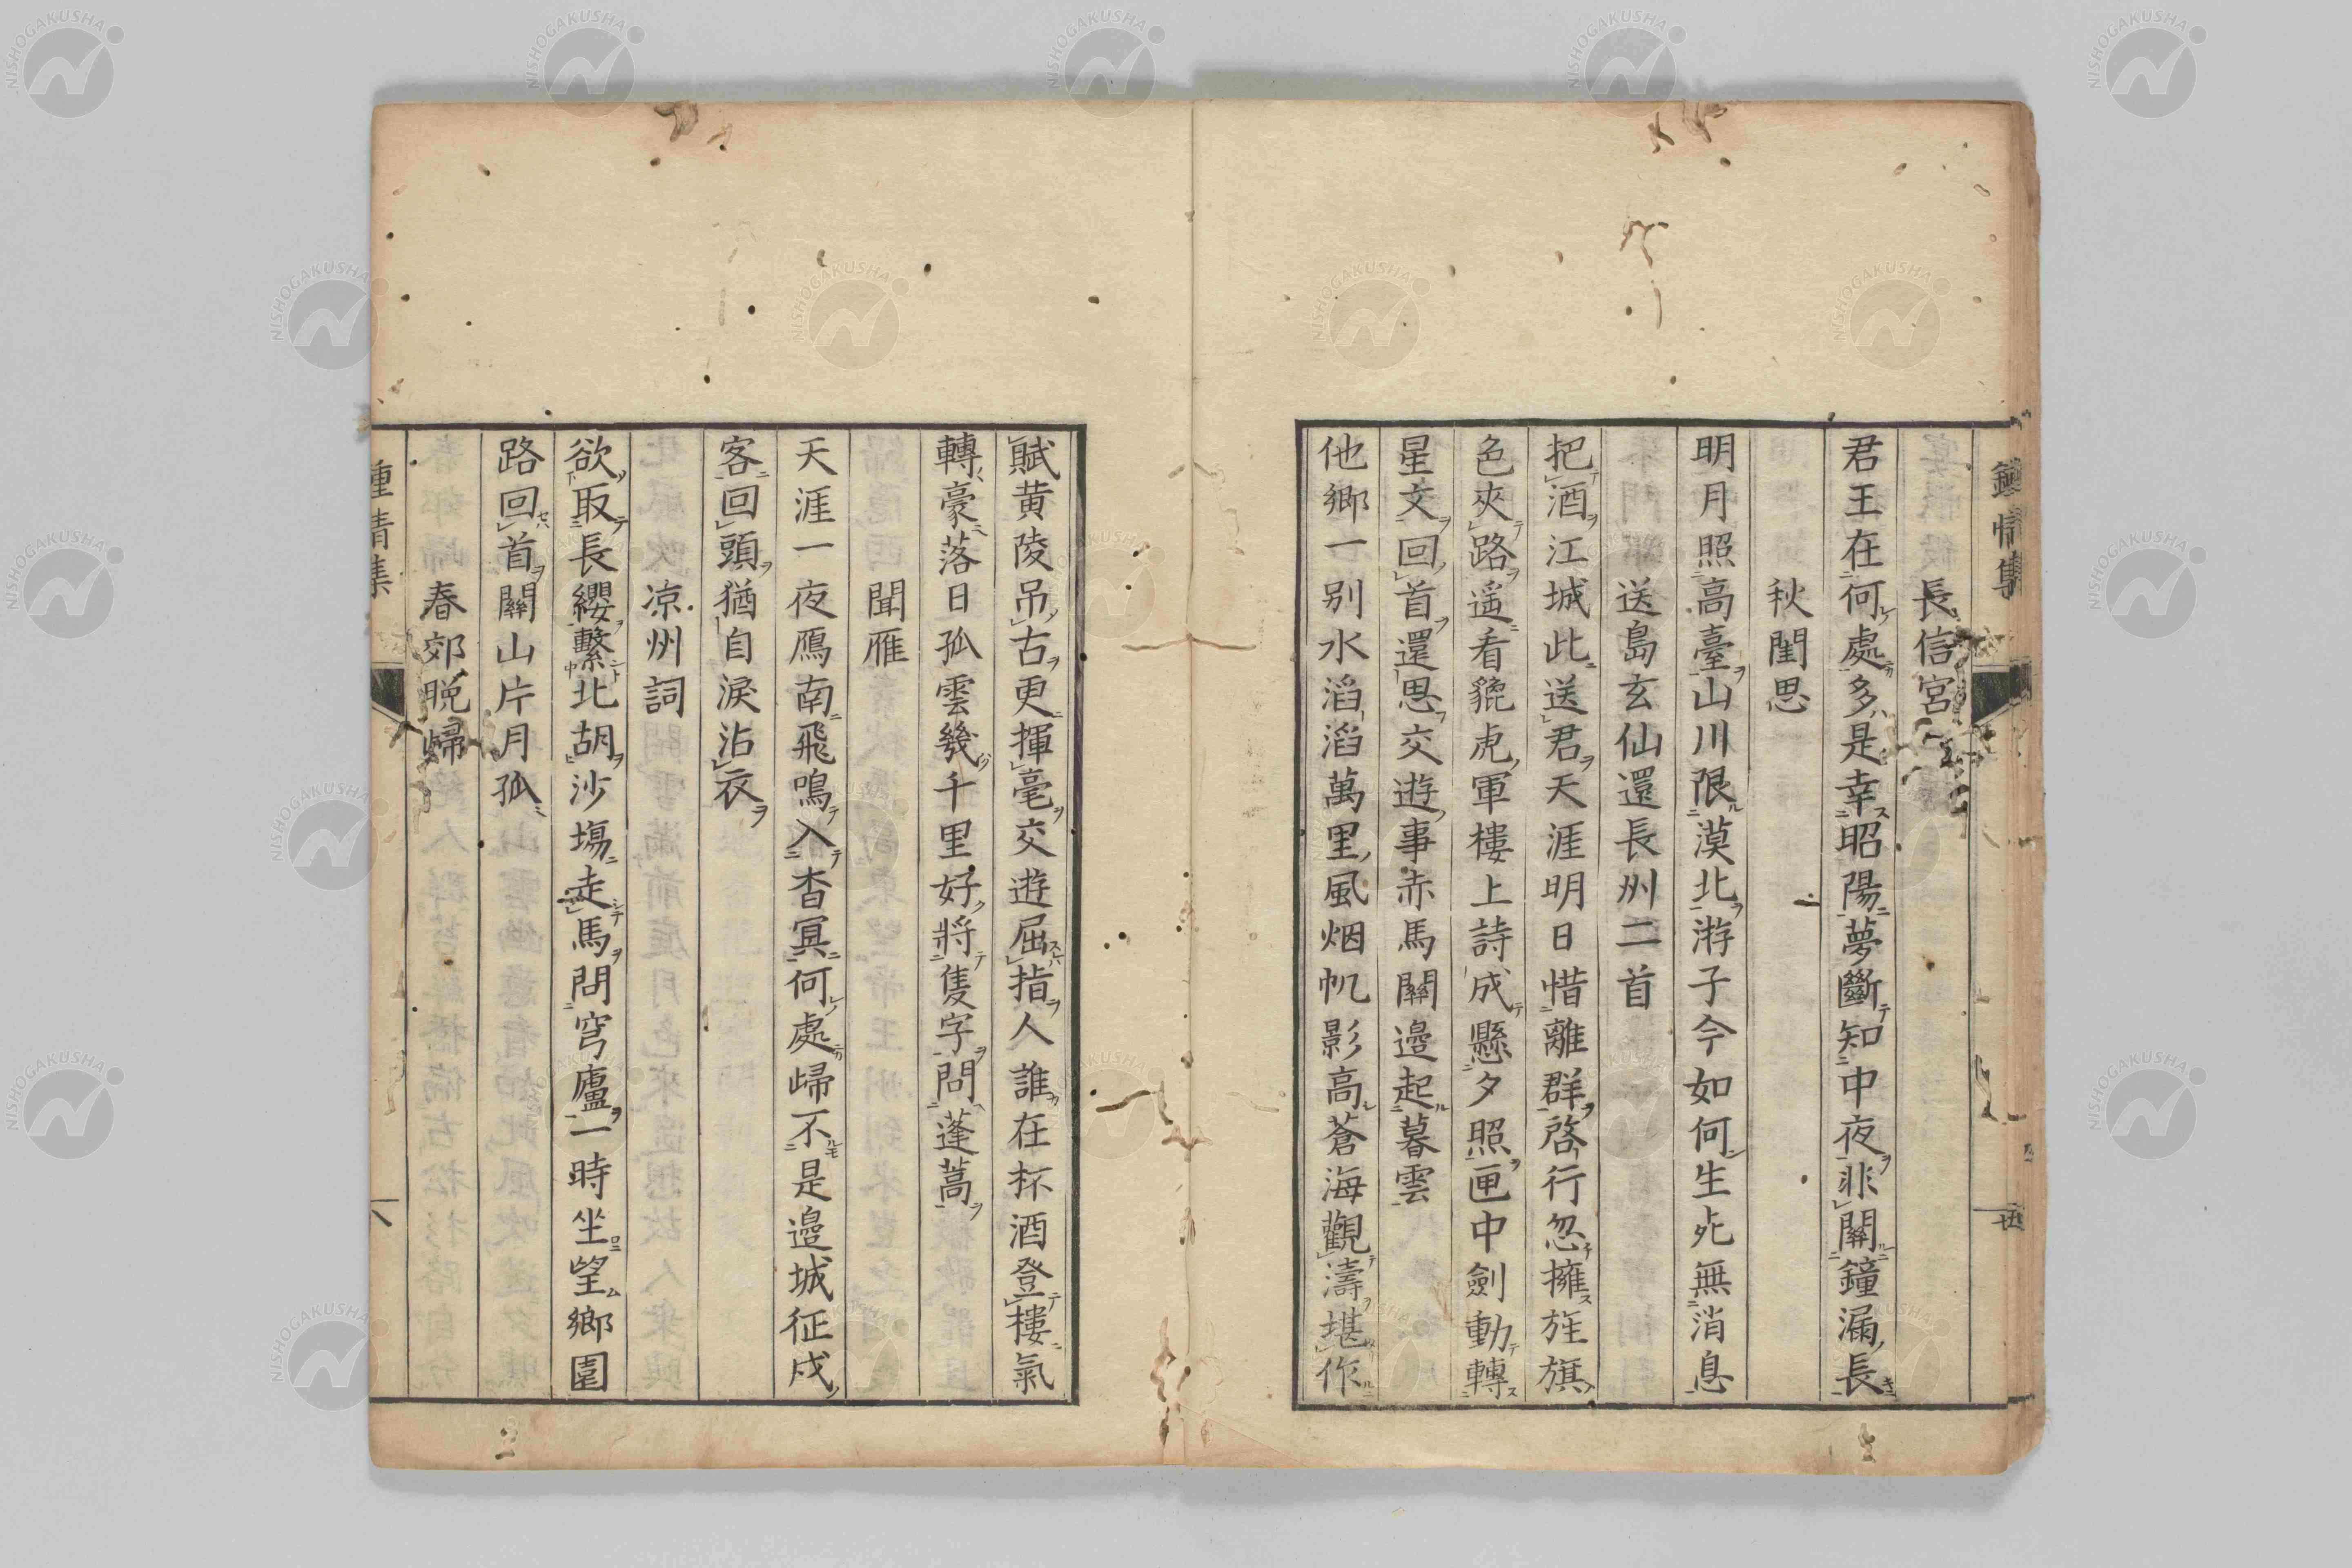 鍾情集
長信宮
君王在何處多是幸昭陽夢斷知中夜非關鐘漏長
秋閨思
明月照高臺山川限漠北游子今如何生死無消息
送島玄仙還長州二首
把酒江城此送君天涯明日惜離群啓行忽擁旌旗
色夾路遥看貔虎軍樓上詩成懸夕照匣中劍動轉
星文回首還思交遊事赤馬關邉起暮雲
他鄉一別水滔滔萬里風烟帆影高蒼海觀濤堪作
賦黄陵吊古更揮毫交遊屈指人誰在杯酒登樓氣
轉豪落日孤雲幾千里好將隻字問蓬蒿
聞雁
天涯一夜鴈南飛鳴入杳冥何處歸不是邉城征戍
客回頭猶自淚沾衣
凉州詞
欲取長纓繫北胡沙塲走馬問穹廬一時坐望鄉園
路回首關山片月孤
春郊晚歸
鍾情集
NISHOGAKUSHA